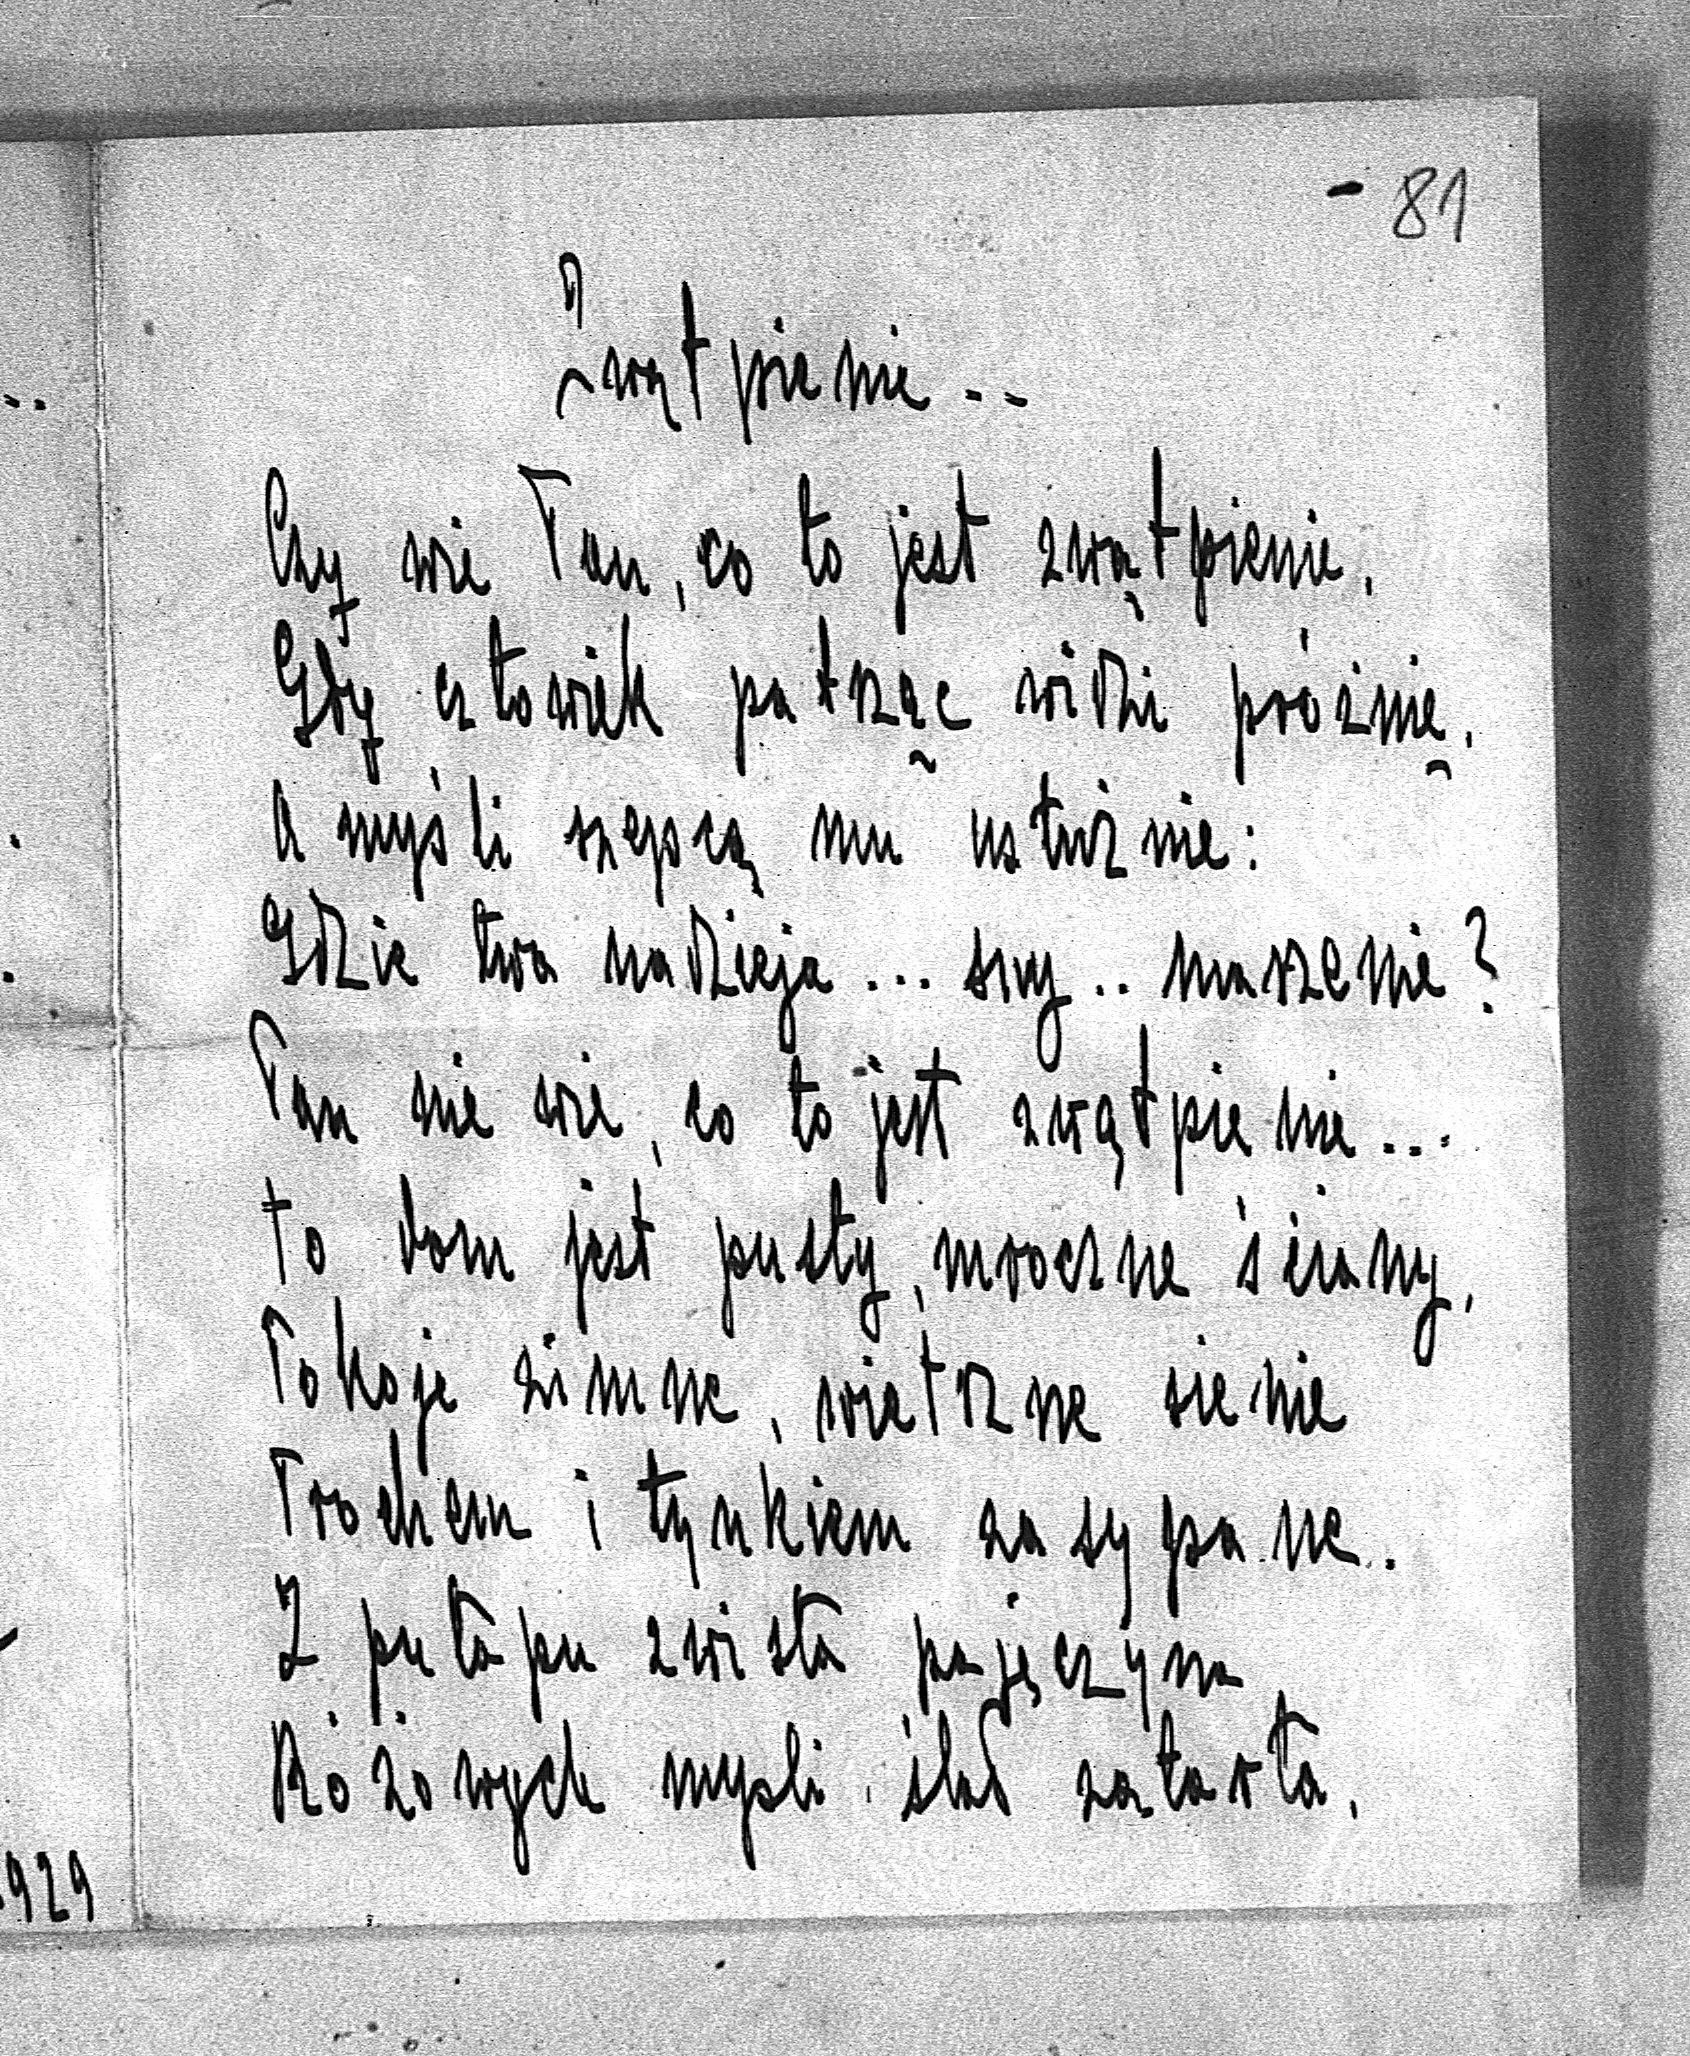 - 81
Zwątpienie ..
Czy wie Pan, co to jest zwątpienie,
Gdy człowiek patrząc widzi próżnię,
A myśli szepcą mu usłużnie:
Gdzie twa nadzieja ... sny .. marzenie?
Pan nie wie, co to jest zwątpienie ...
to dom jest pusty, mroczne ściany,
Pokoje zimne, wietrzne sienie
Prochem i tynkiem zasypane.
Z pułapu zwisła pajęczyna
Różowych myśli ślad zatarła,
929